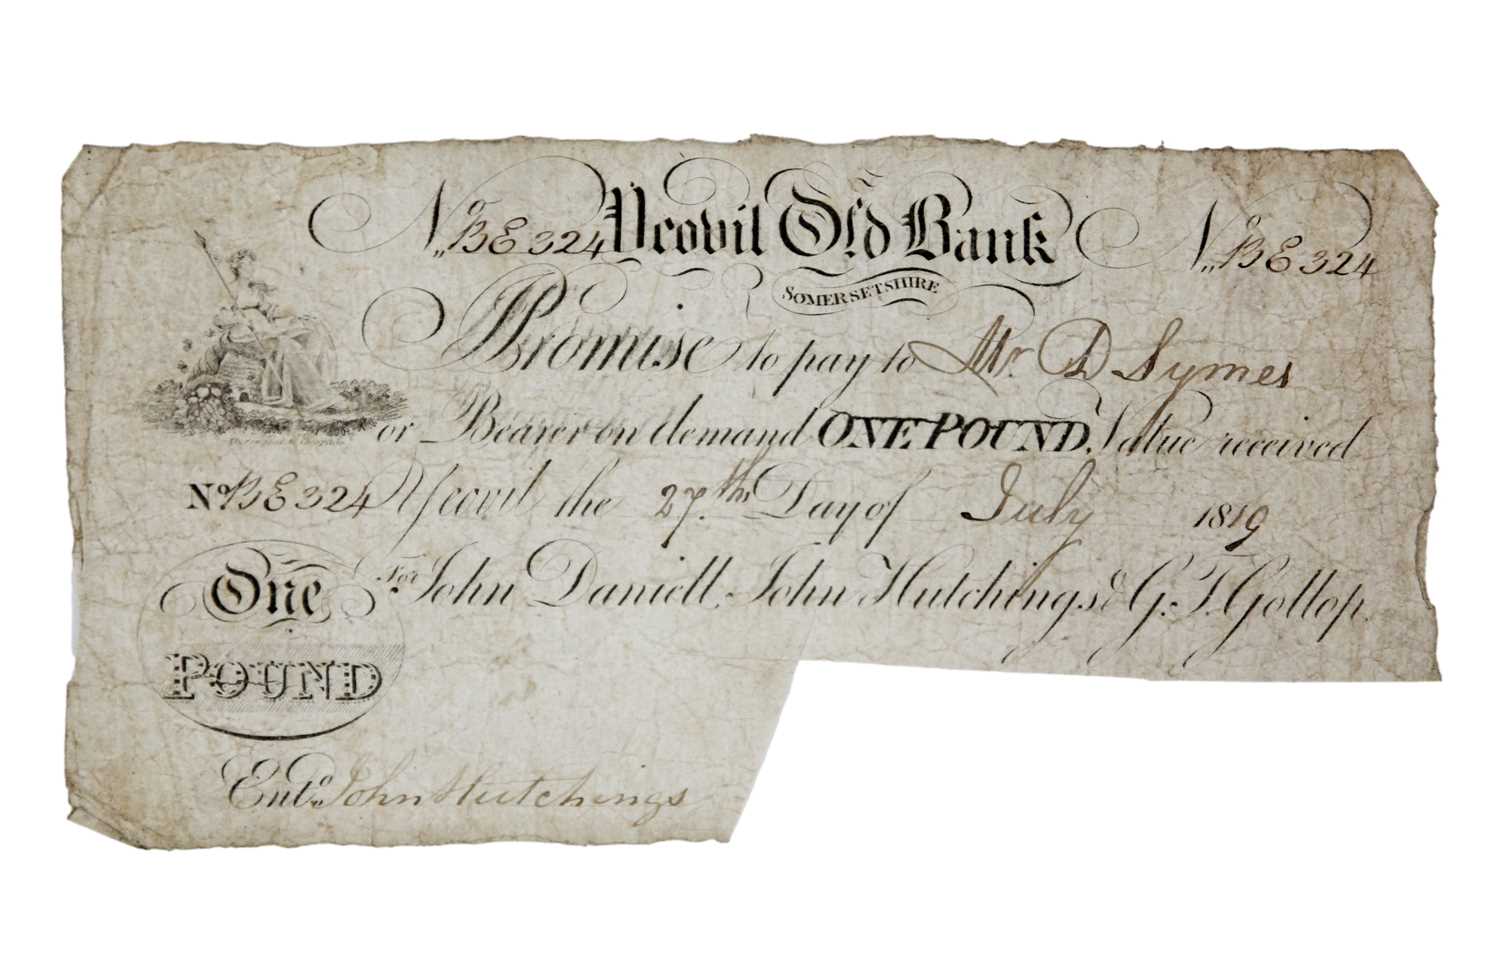 No BE 324 Yeovil Old Bank No BE 324
SOMERSETSHIRE
Promise to pay to Mr. D Symes
or Bearer on demand ONE POUND. Value received
No BE 324 Yeovil the 27th Day of July 1819
For John Daniell, John Hutchings & G. T. Gollop.
One
POUND
Entd. John Hutchings